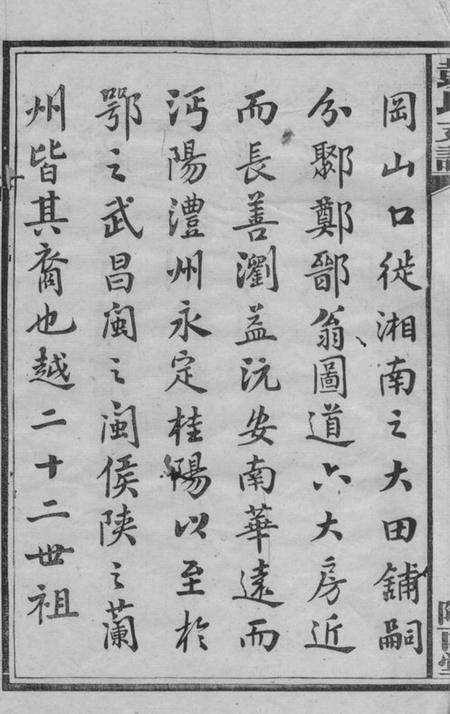 岡山口徙湘南之大田鋪嗣
分鄹鄭鄑翁圖道六大房近
而長善瀏益沅安南華遠而
沔陽澧州永定桂陽以至於
鄂之武昌閩之閩侯陝之蘭
州皆其裔也越二十二世祖